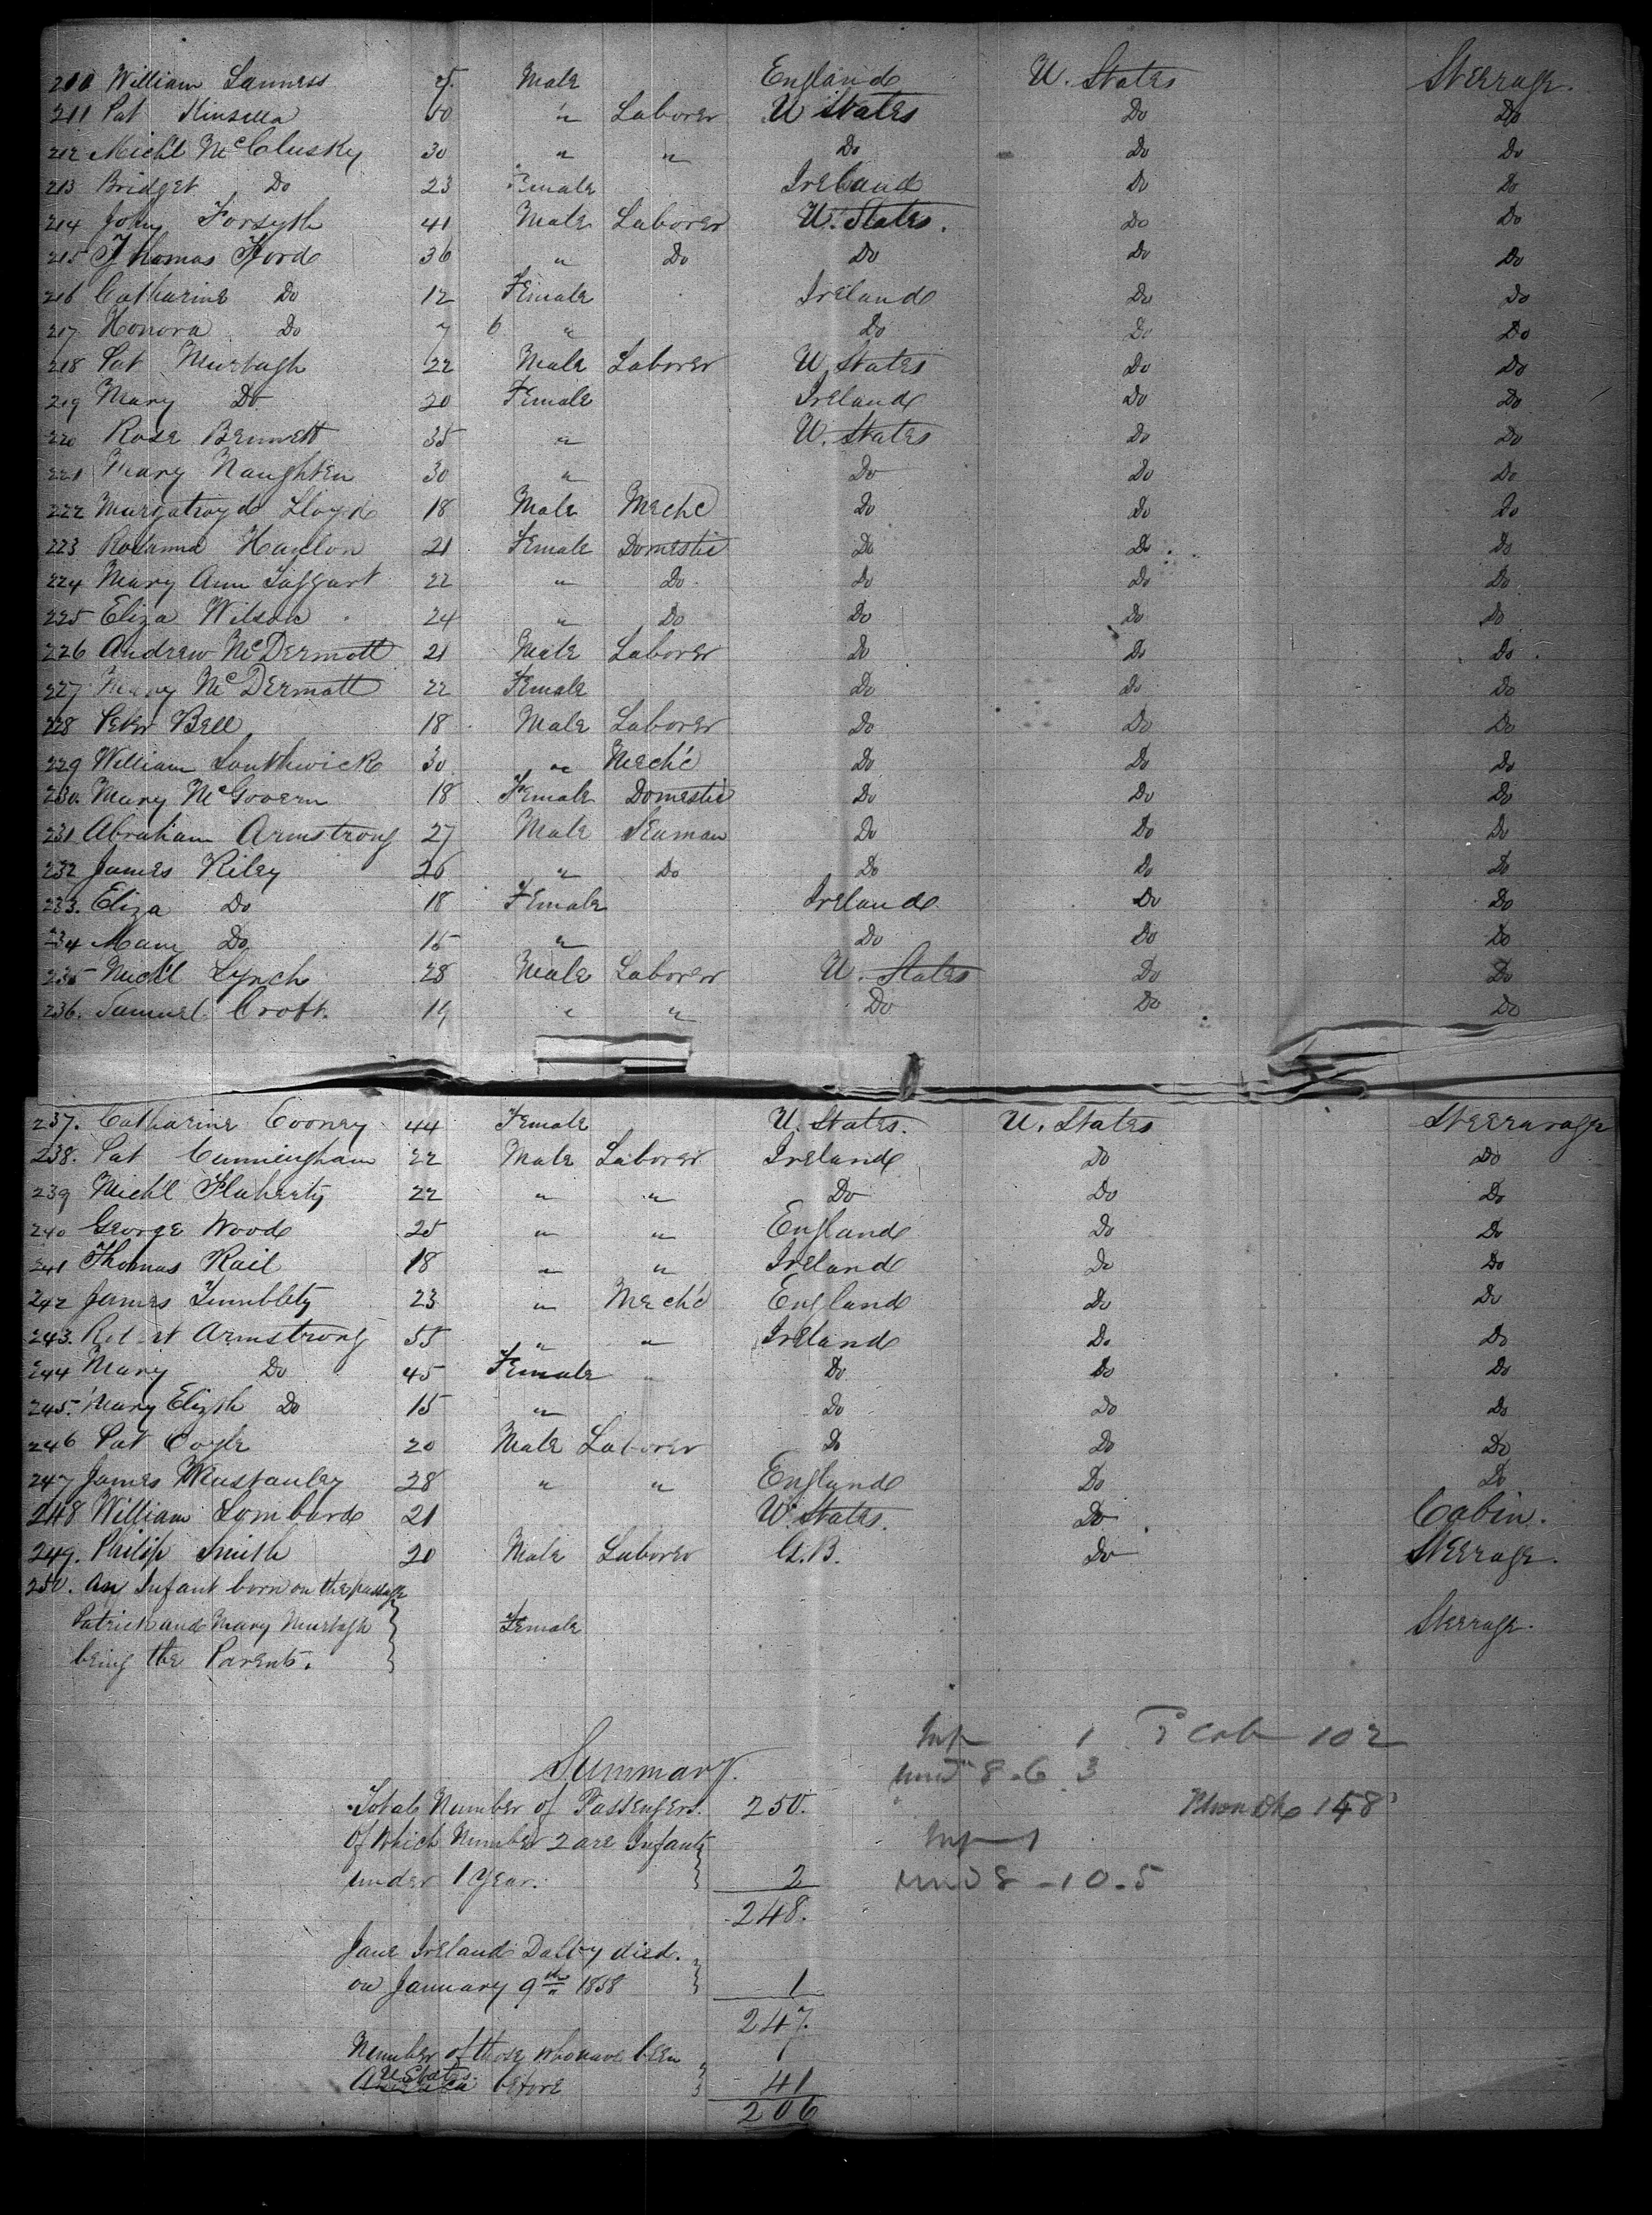 210 William Lanness 5 Male England U. States Steerage.
211 Pat Kinsella 50 " Laborer U States Do Do
212 Michl McClusky 30 " " Do Do Do
213 Bridget Do 23 Female Ireland Do Do
214 John Forsyth 41 Male Laborer U. States. Do Do
215 Thomas Ford 36 " Do Do Do Do
216 Catharine Do 12 Female Ireland Do Do
217 Honora Do 7 6 " Do Do Do
218 Pat Murtagh 22 Male Laborer U States Do Do
219 Mary Do 20 Female Ireland Do Do
220 Rose Bennett 35 " U. States Do Do
221 Mary Naughten 30 " Do Do Do
222 Murgatroyd Lloyd 18 Male Mechc Do Do Do
223 Rosanna Hanlon 21 Female Domestic Do Do Do
224 Mary Ann Taggart 22 " Do Do Do Do
225 Eliza Wilson 24 " Do Do Do Do
226 Andrew McDermott 21 Male Laborer Do Do Do
227 Mary McDermott 22 Female Do Do Do
228 Peter Bell 18 Male Laborer Do Do Do
229 William Southwick 30 " Mech'c Do Do Do
230. Mary McGovern 18 Female Domestic Do Do Do
231 Abraham Armstrong 27 Male Seaman Do Do Do
232 James Riley 26 " Do Do Do Do
233. Eliza Do 18 Female Ireland Do Do
234 Mary Do 15 " Do Do Do
235 Mich'l Lynch 28 Male Laborer U. States Do Do
236. Samuel Croft. 19 " " Do Do Do
237. Catharine Cooney 44 Female U. States. U. States Steerarage
238. Pat Cunningham 22 Male Laborer Ireland Do Do
239 Michl Flaherty 22 " " Do Do Do
240 George Wood 25 " " England Do Do
241 Thomas Rail 18 " " Ireland Do Do
242 James Tumblety 23 " Mech'c England Do Do
243. Robert Armstrong 55 " " Ireland Do Do
244 Mary Do 45 Female " Do Do Do
245. Mary Elizth Do 15 " Do Do Do
246 Pat Coyle 20 Male Laborer Do Do Do
247 James Mustanley 28 " " England Do Do
248 William Lombard 21 U. States. Do Cabin.
249. Philip Smith 20 Male Laborer G.B. Do Steerage.
250. An Infant born on the passage
Patrick and Mary Murtagh Female Steerage.
being the Parents.
Inf 1 2 Cab 102
Summary. und 8-6 3
Total Number of Passengers. 250. 148
Of which Number 2 are Infants Inf 1
under 1 Year. 2 und 8-10.5
248.
Jane Ireland Dalby died.
on January 9th 1858 1
247.
Number of those who have been
U States
America before 41
206